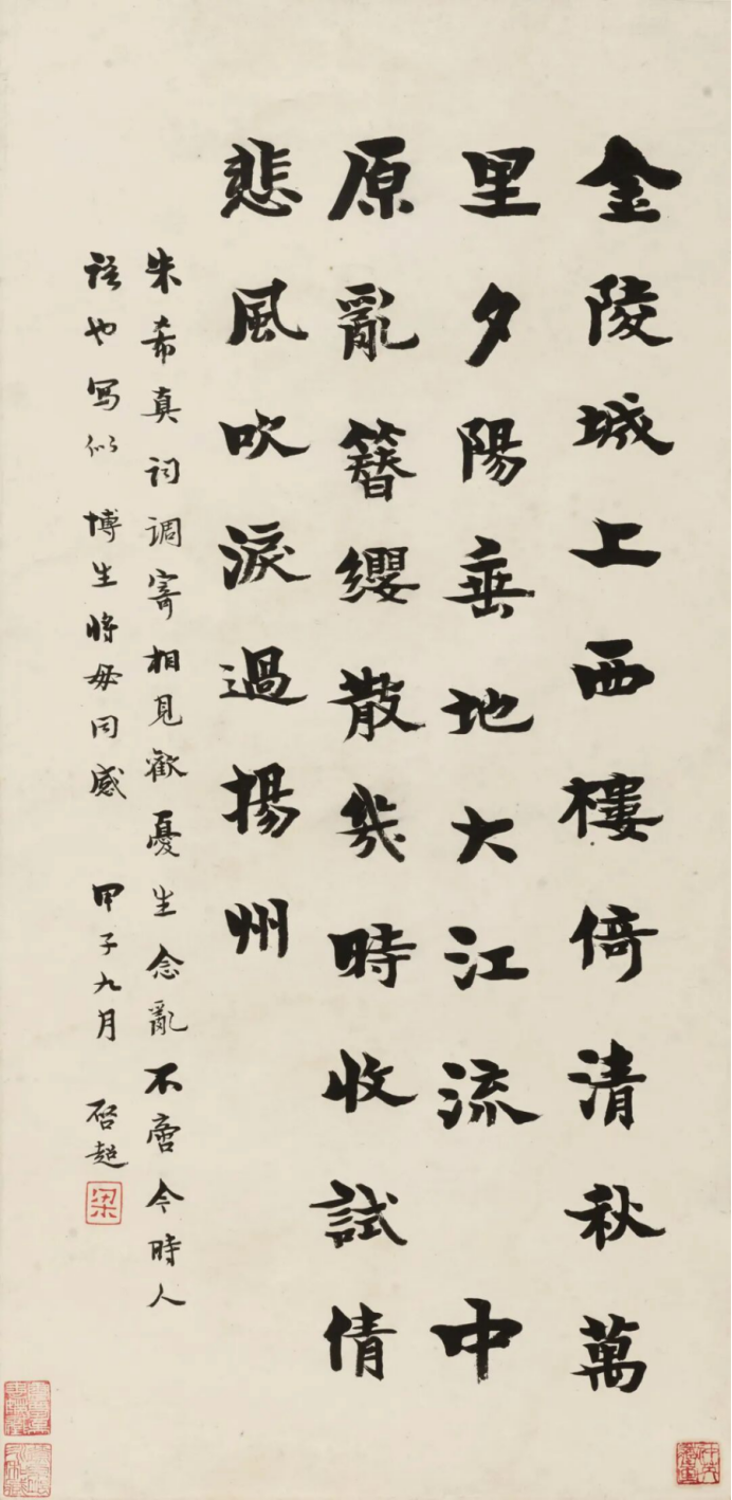 金陵城上西樓倚清秋萬
里夕陽垂地大江流中
原亂簪纓散幾時收試倩
悲風吹淚過揚州
朱希真詞調寄相見歡憂生念亂不啻今時人
語也写似 博生將毋同感 甲子九月 啓超
梁